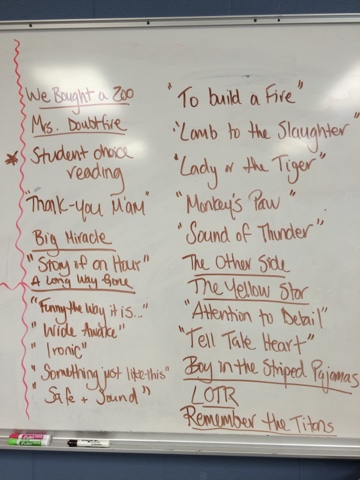 We Bought a Zoo
Mrs. Doubtfire
* Student choice
reading
"Thank-you M'am"
Big Miracle
"Story of an Hour"
A Long Way Gone
"Funny the way it is..."
"Wide Awake"
"Ironic"
"Something just like this"
"Safe + Sound"
"To build a Fire"
"Lamb to the Slaughter"
"Lady or the Tiger"
"Monkey's Paw"
"Sound of Thunder"
The Other Side
The Yellow Star
"Attention to Detail"
"Tell Tale Heart"
Boy in the Striped Pajamas
LOTR
Remember the Titans